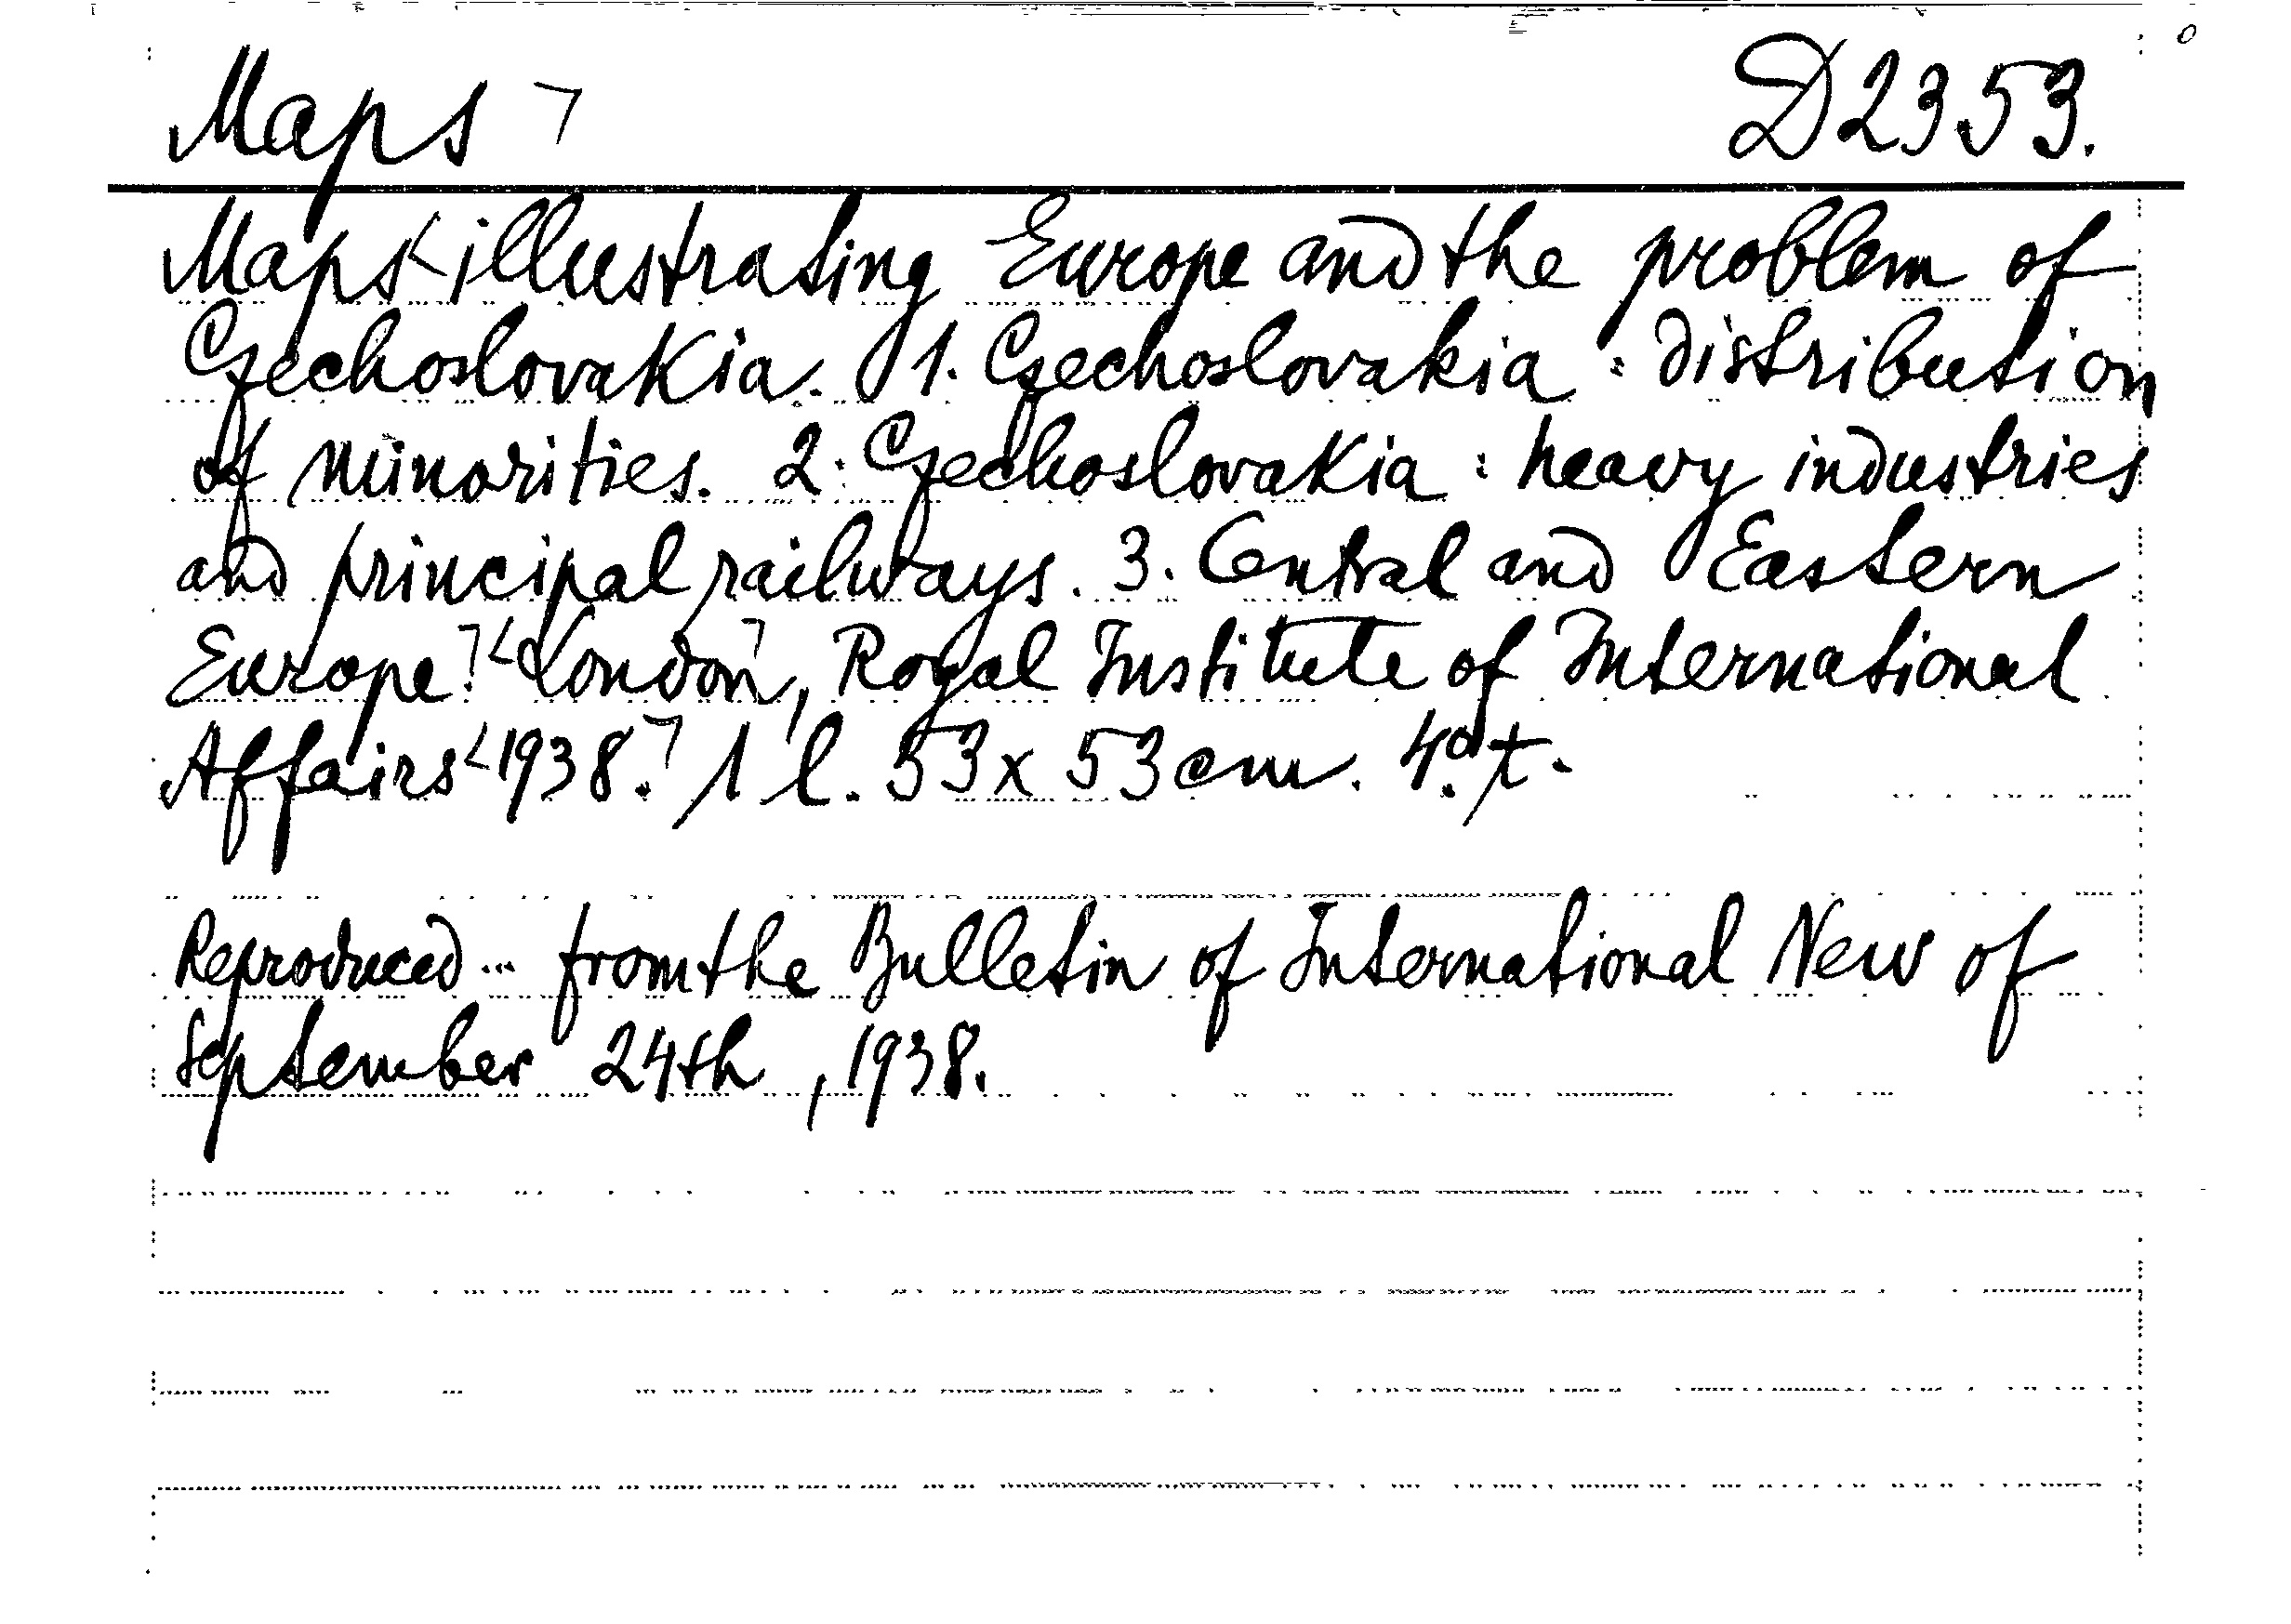 Maps ┐ D2353.
Maps < illustrating Europe and the problem of
Czechoslovakia. 1. Czechoslovakia : distribution
of minorities. 2. Czechoslovakia : heavy industries
and principal railways. 3. Central and Eastern
Europe.┐ <London┐, Royal Institute of International
Affairs <1938.┐ 1 l. 53 x 53 cm. 4.°
Reproduced ... from the Bulletin of International New of
September 24th, 1938.